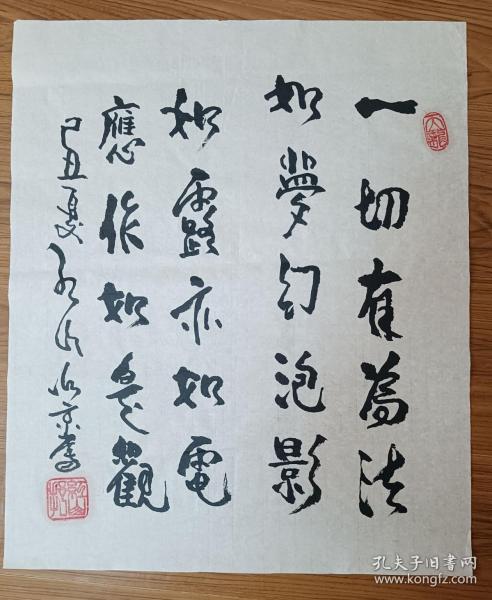 一切有為法
如夢幻泡影
如露亦如電
應作如是觀
己丑夏
於北京
孔夫子旧书网
www.kongfz.com